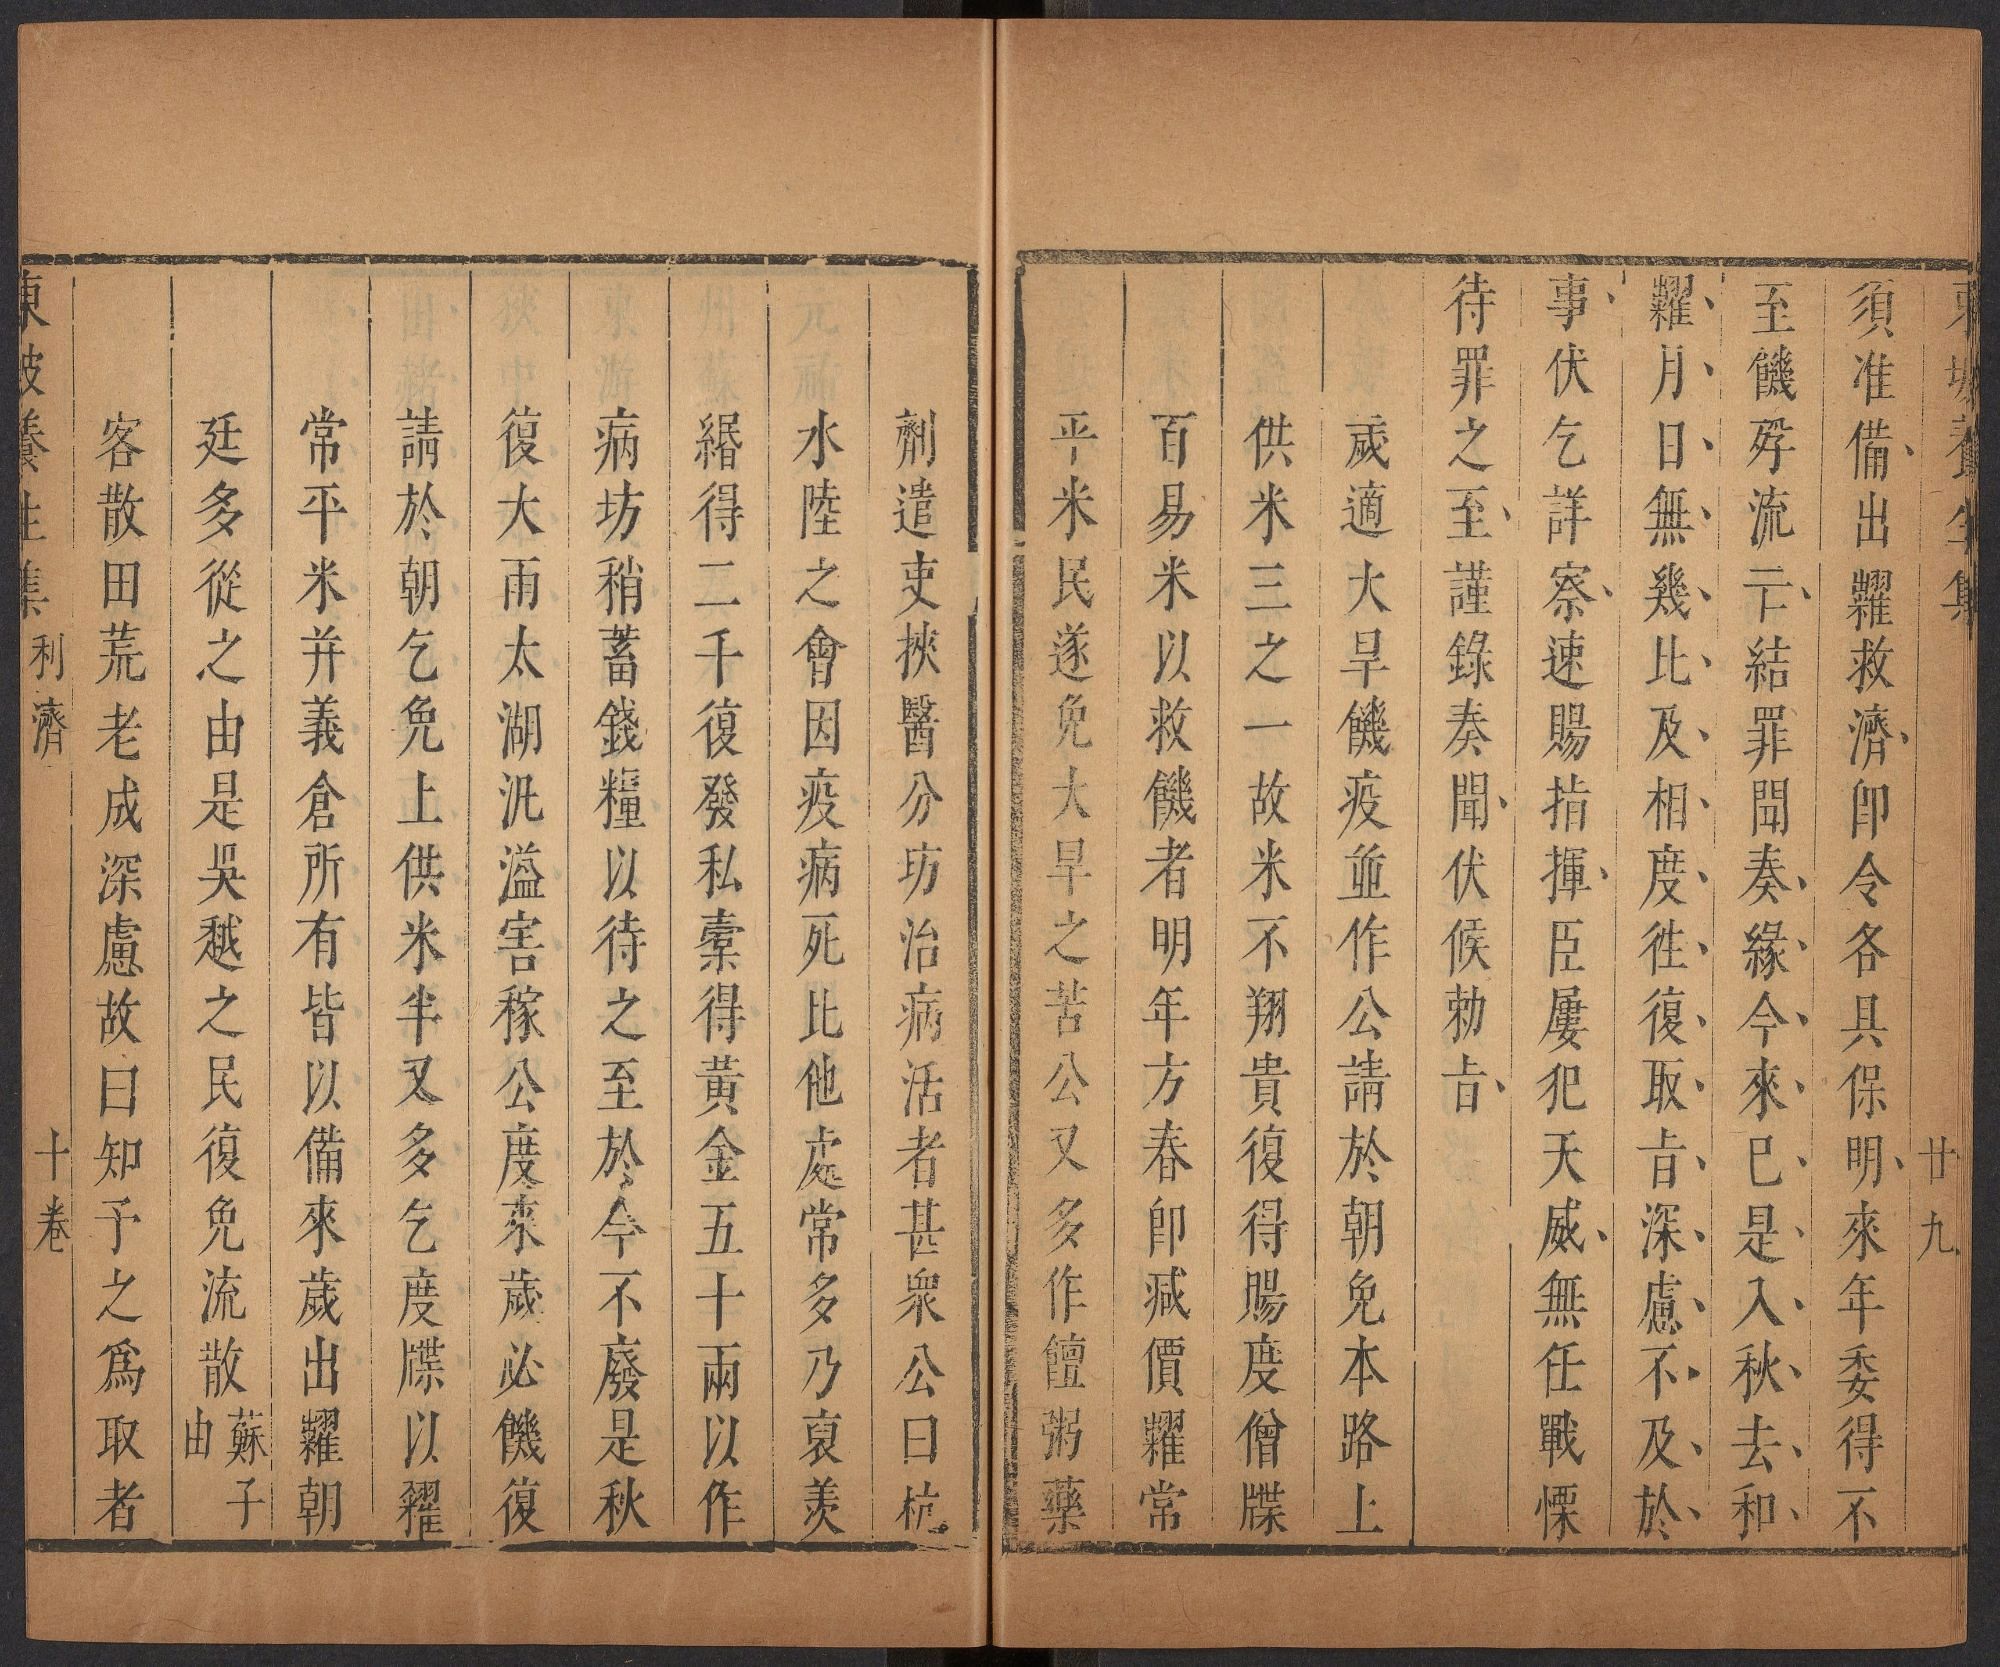 東坡養生集
廿九
須准備出糶救濟卽令各具保明來年委得不
至饑殍流亡結罪聞奏緣今來已是入秋去和
糴月日無幾比及相度徃復取旨深慮不及於
事伏乞詳察速賜指揮臣屢犯天威無任戰慄
待罪之至謹錄奏聞伏候勅旨
歲適大旱饑疫並作公請於朝免本路上
供米三之一故米不翔貴復得賜度僧牒
百易米以救饑者明年方春卽減價糶常
平米民遂免大旱之苦公又多作饘粥藥
劑遣吏挾醫分坊治病活者甚衆公曰杭
水陸之會因疫病死比他處常多乃裒羨
緡得二千復發私橐得黃金五十兩以作
病坊稍蓄錢糧以待之至於今不廢是秋
復大雨太湖汎溢害稼公度來歲必饑復
請於朝乞免上供米半又多乞度牒以糴
常平米并義倉所有皆以備來歲出糶朝
廷多從之由是吳越之民復免流散蘇子由
客散田荒老成深慮故曰知予之爲取者
東坡養生集 利濟 十卷